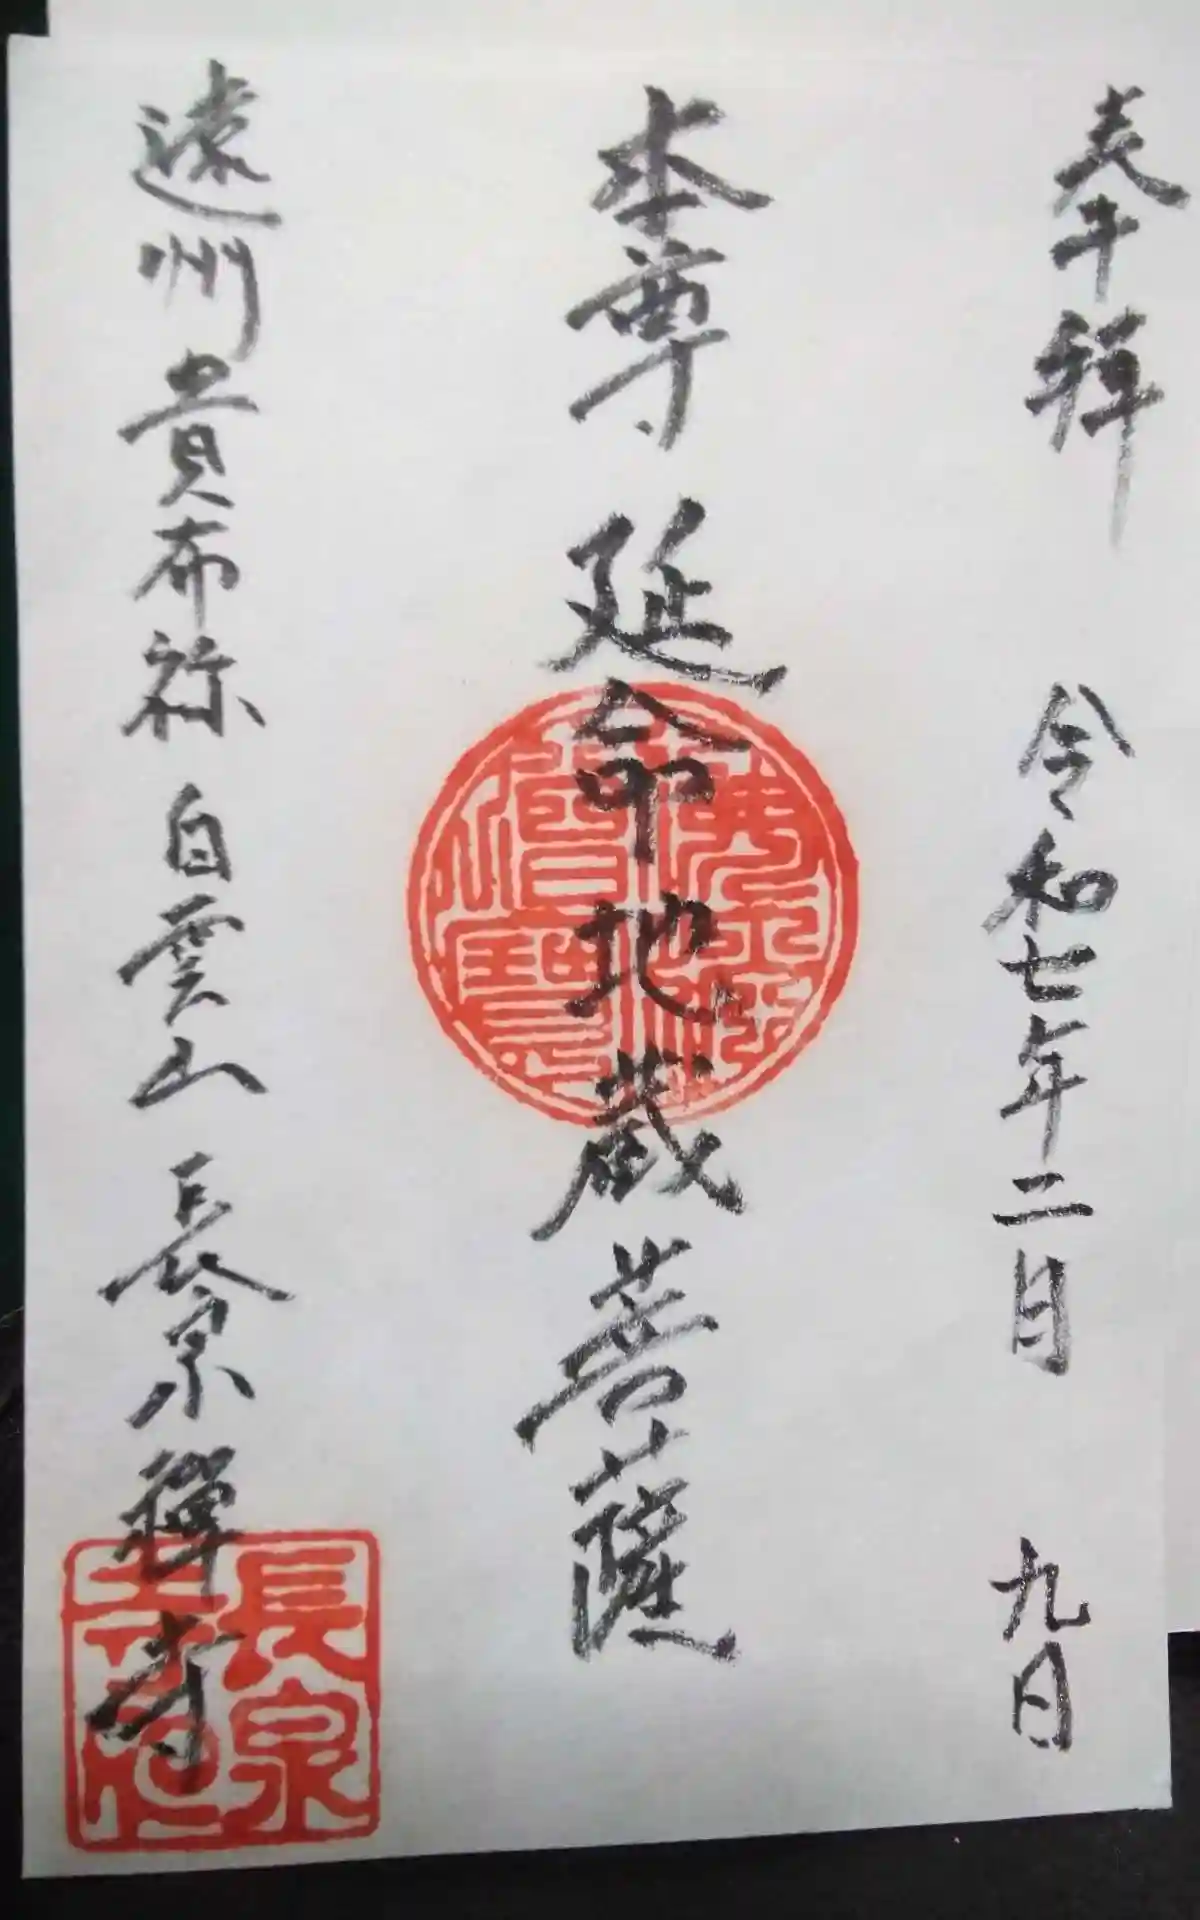 奉拝
令和七年二月
九日
本尊 延命地蔵菩薩
佛法僧寶
遠州貴布祢 白雲山 長泉禅寺
長泉